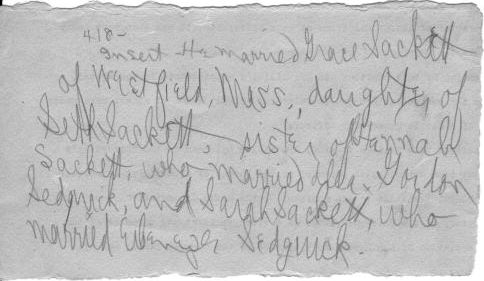 418-
Insert He married Grace Sackett
of Westfield, Mass., daughter of
Seth Sackett, sister of Hannah
Sackett, who married Gordon
Sedgwick, and Sarah Sackett, who
married Ebenezer Sedgwick.